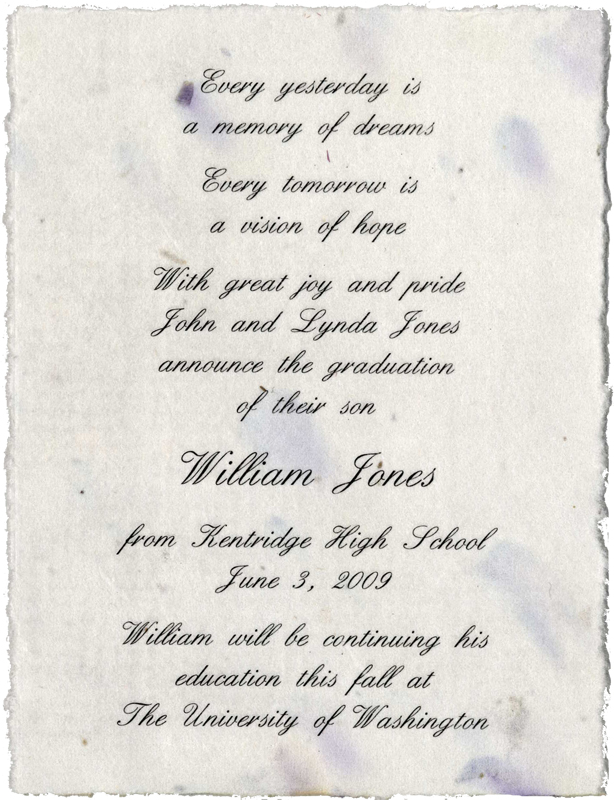 Every yesterday is
a memory of dreams
Every tomorrow is
a vision of hope
With great joy and pride
John and Lynda Jones
announce the graduation
of their son
William Jones
from Kentridge High School
June 3, 2009
William will be continuing his
education this fall at
The University of Washington